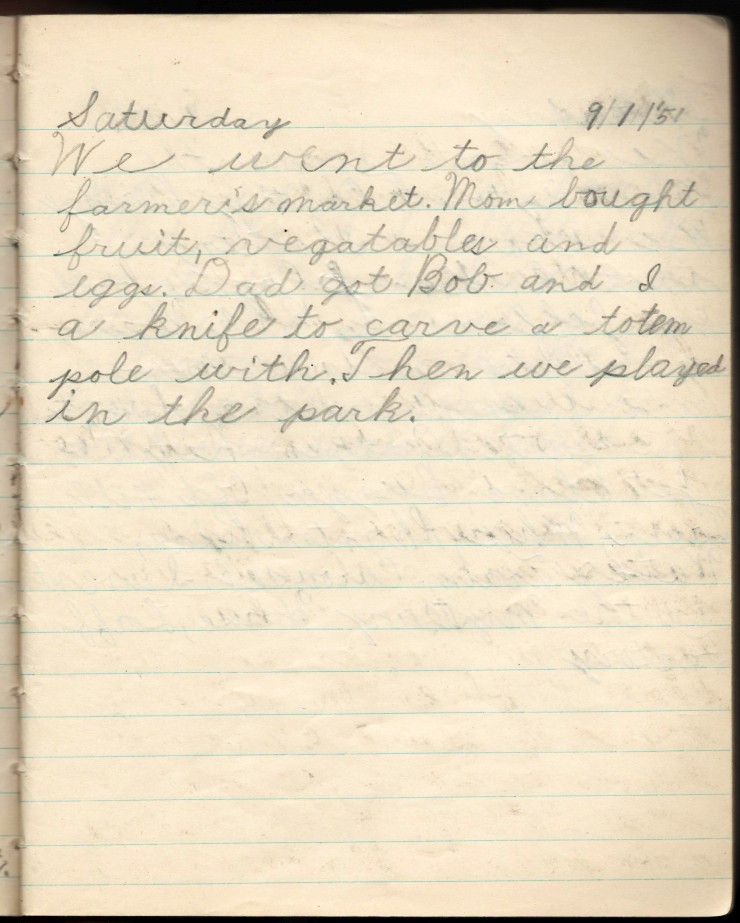 Saturday 9/1/'51
We went to the
farmer's market. Mom bought
fruit, vegatables and
eggs. Dad got Bob and I
a knife to carve a totem
pole with. Then we played
in the park.